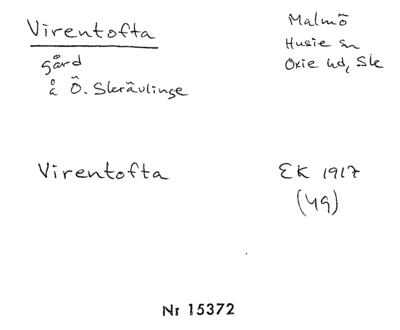 Virentofta
gård
å Ö. Skrävlinge
Malmö
Husie sn
Oxie hd, Sk
Virentofta
EK 1917
(49)
Nr 15372